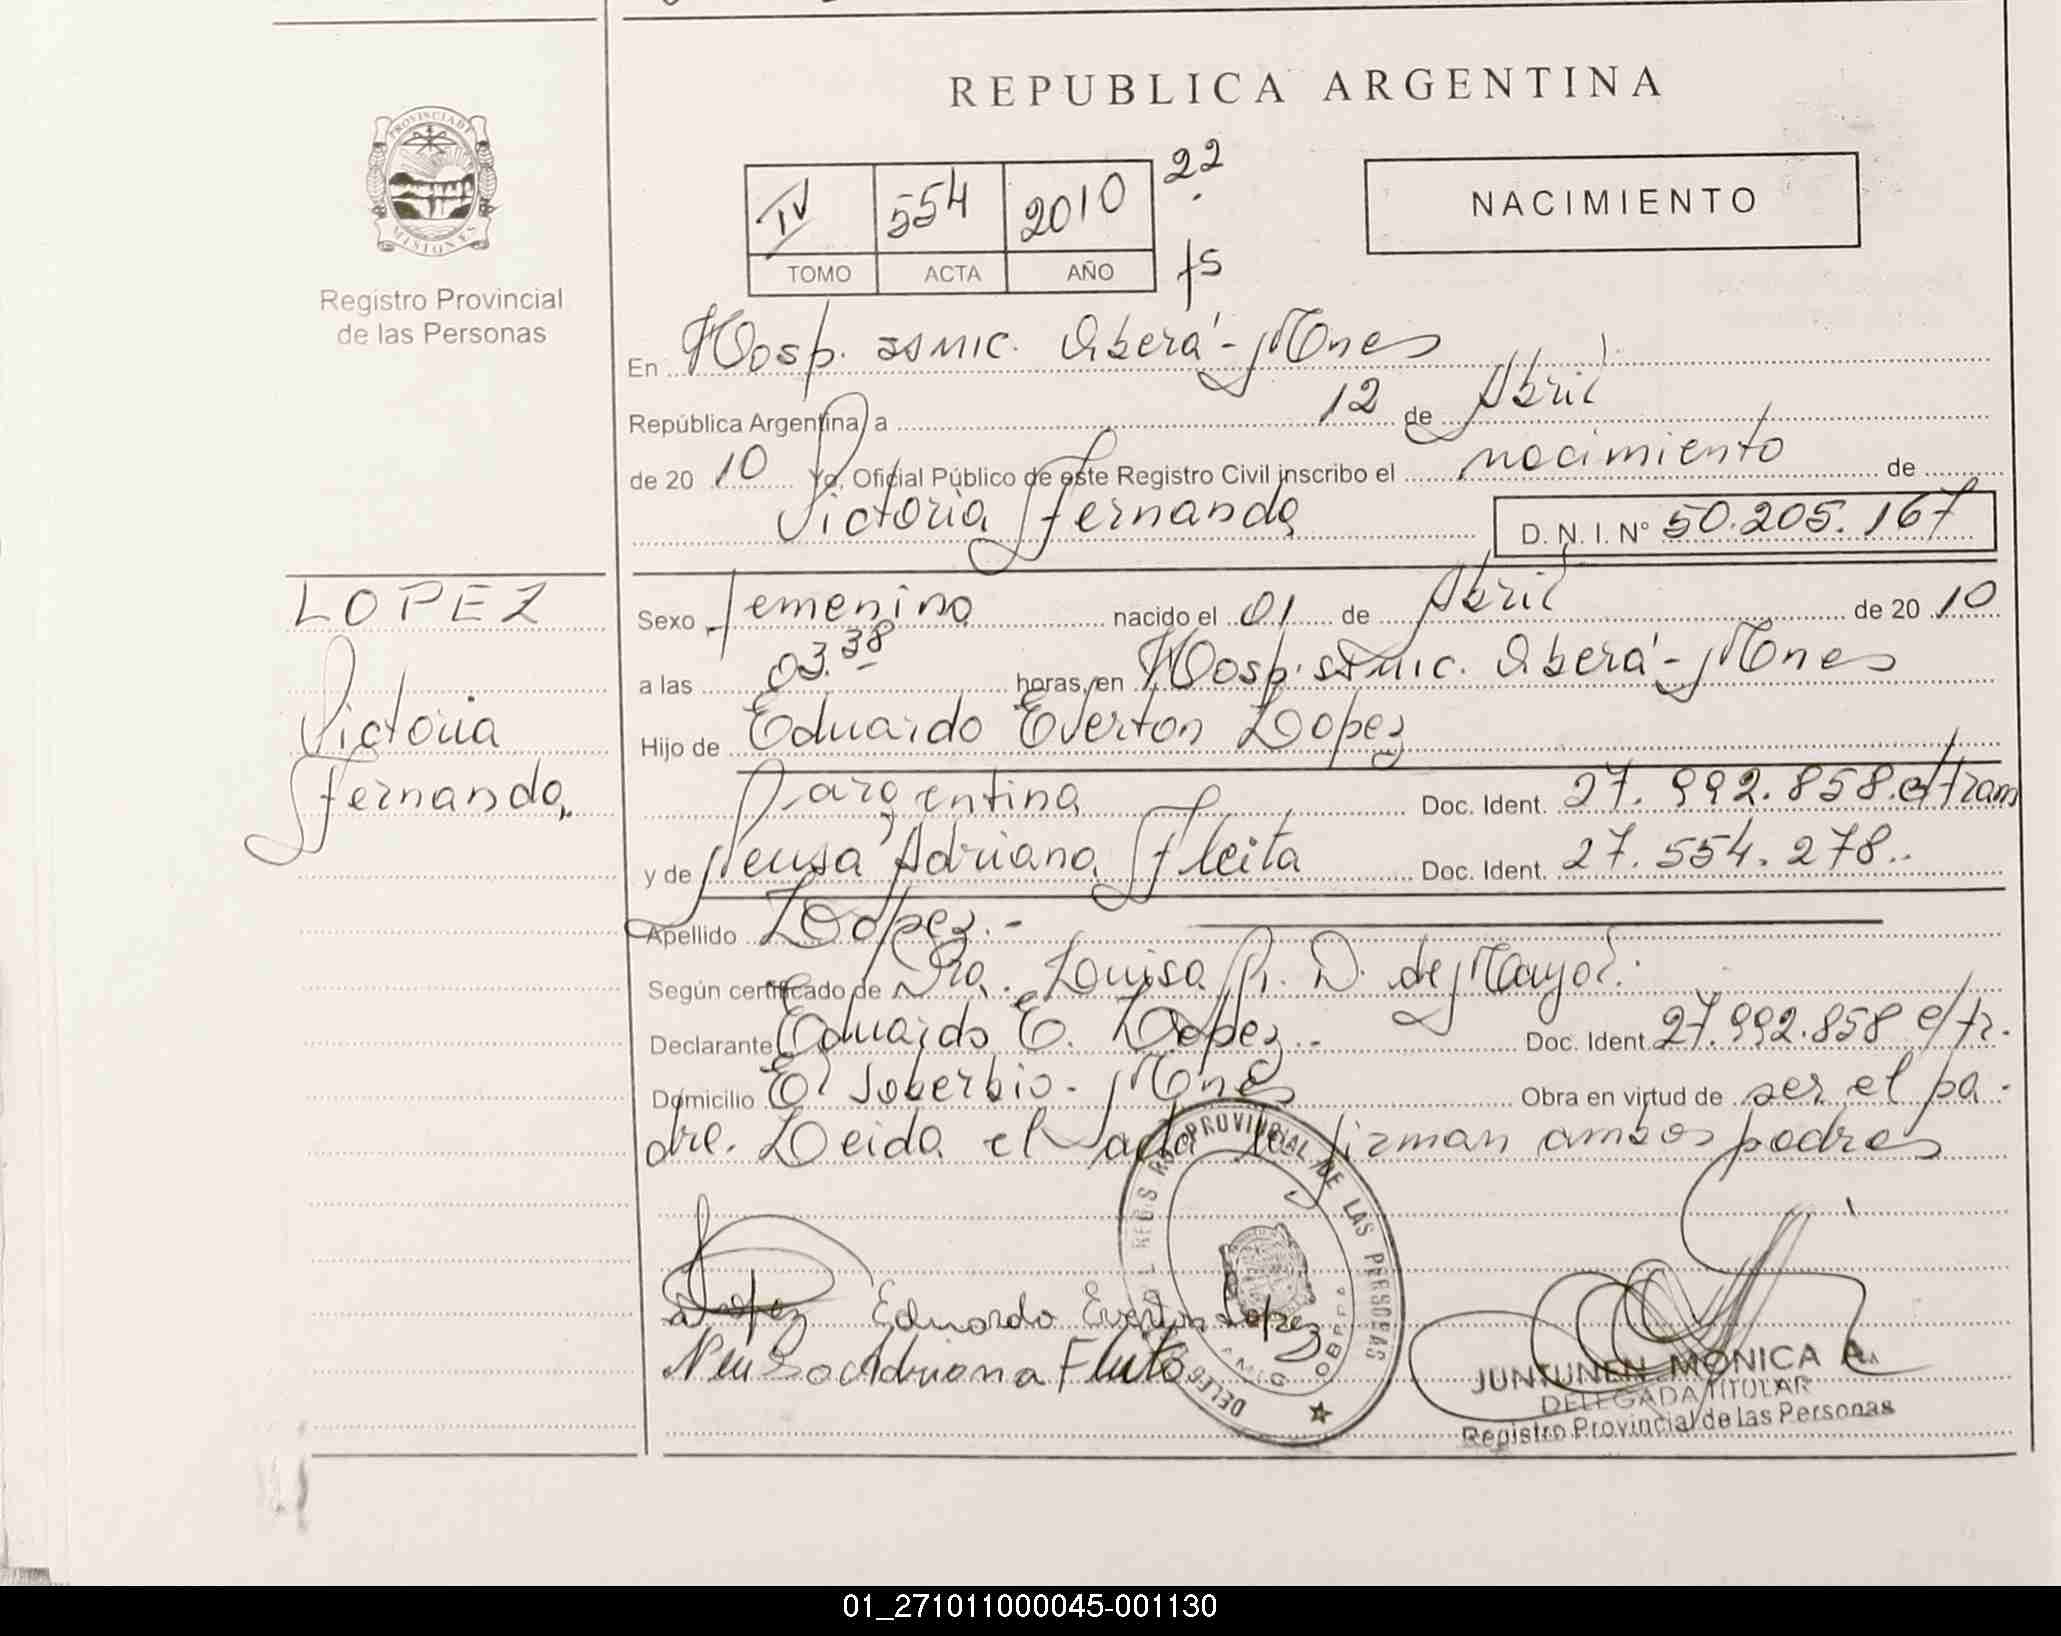 REPUBLICA ARGENTINA
PROVINCIA DE
MISIONES
Registro Provincial
de las Personas
IV 554 2010 22
TOMO ACTA AÑO fs
NACIMIENTO
En Hosp. SSMIC. Oberá - Mnes
República Argentina, a 12 de Abril
de 20 10 Yo, Oficial Público de este Registro Civil inscribo el nacimiento de
Victoria Fernanda D. N. I. N° 50.205.167
LOPEZ
Victoria
Fernanda
Sexo femenino nacido el 01 de Abril de 20 10
a las 03.38 horas, en Hosp. SSMIC. Oberá - Mnes
Hijo de Eduardo Everton Lopez
argentina Doc. Ident. 27.992.858 e/tram
y de Neusa Adriana Fleita Doc. Ident. 27.554.278..
Apellido Lopez.-
Según certificado de Dra. Louisa R. D. de Mayol.
Declarante Eduardo E. Lopez.- Doc. Ident. 27.992.858 e/tr.
Domicilio El Soberbio - Mnes Obra en virtud de ser el pa-
dre. Leida el acta la firman ambos padres
Lopez Eduardo Everton Lopez
Neusa Adriana Fleita
REGISTRO PROVINCIAL DE LAS PERSONAS
JUNTUNEN MONICA A.
DELEGADA TITULAR
Registro Provincial de las Personas
01_271011000045-001130